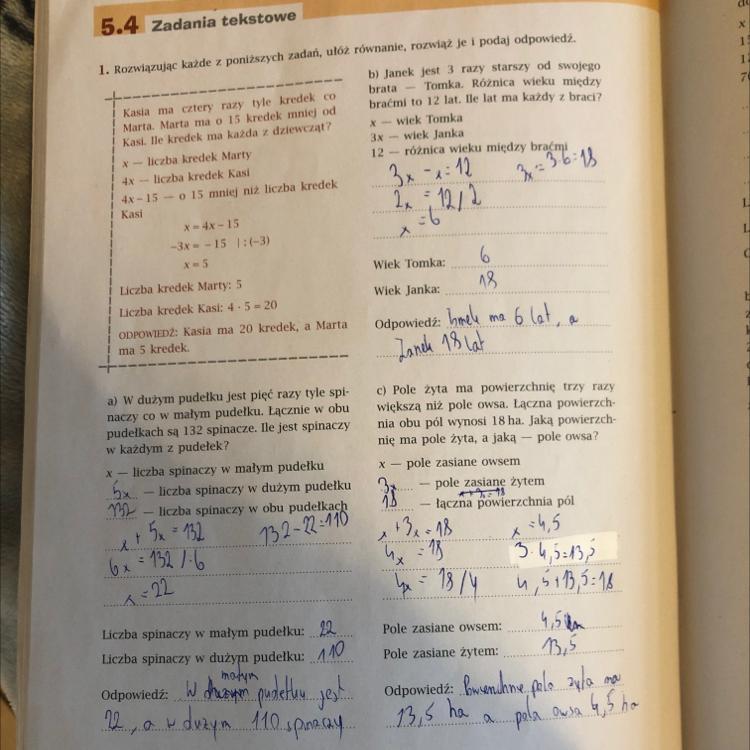 5.4 Zadania tekstowe
1. Rozwiązując każde z poniższych zadań, ułóż równanie, rozwiąż je i podaj odpowiedź.
Kasia ma cztery razy tyle kredek co
Marta. Marta ma o 15 kredek mniej od
Kasi. Ile kredek ma każda z dziewcząt?
x — liczba kredek Marty
4x — liczba kredek Kasi
4x – 15 — o 15 mniej niż liczba kredek
Kasi
x = 4x – 15
–3x = – 15 | : (–3)
x = 5
Liczba kredek Marty: 5
Liczba kredek Kasi: 4 · 5 = 20
ODPOWIEDŹ: Kasia ma 20 kredek, a Marta
ma 5 kredek.
b) Janek jest 3 razy starszy od swojego
brata — Tomka. Różnica wieku między
braćmi to 12 lat. Ile lat ma każdy z braci?
x — wiek Tomka
3x — wiek Janka
12 — różnica wieku między braćmi
3x - x = 12 3x = 3·6 = 18
2x = 12 / 2
x = 6
Wiek Tomka: 6
Wiek Janka: 18
Odpowiedź: ma 6 lat, a
Janek 18 lat
a) W dużym pudełku jest pięć razy tyle spi-
naczy co w małym pudełku. Łącznie w obu
pudełkach są 132 spinacze. Ile jest spinaczy
w każdym z pudełek?
x — liczba spinaczy w małym pudełku
5x — liczba spinaczy w dużym pudełku
132 — liczba spinaczy w obu pudełkach
x + 5x = 132 132 - 22 = 110
6x = 132 /·6
x = 22
Liczba spinaczy w małym pudełku: 22
Liczba spinaczy w dużym pudełku: 110
małym
Odpowiedź: W dużym pudełku jest
22, a w dużym 110 spinaczy
c) Pole żyta ma powierzchnię trzy razy
większą niż pole owsa. Łączna powierzch-
nia obu pól wynosi 18 ha. Jaką powierzch-
nię ma pole żyta, a jaką — pole owsa?
x — pole zasiane owsem
3x — pole zasiane żytem
x + 3x = 18
18 — łączna powierzchnia pól
x + 3x = 18 x = 4,5
4x = 18 3·4,5 = 13,5
4x = 18 / 4 4,5 + 13,5 = 18
Pole zasiane owsem: 4,5
Pole zasiane żytem: 13,5
Odpowiedź: pola żyta ma
13,5 ha a pola owsa 4,5 ha